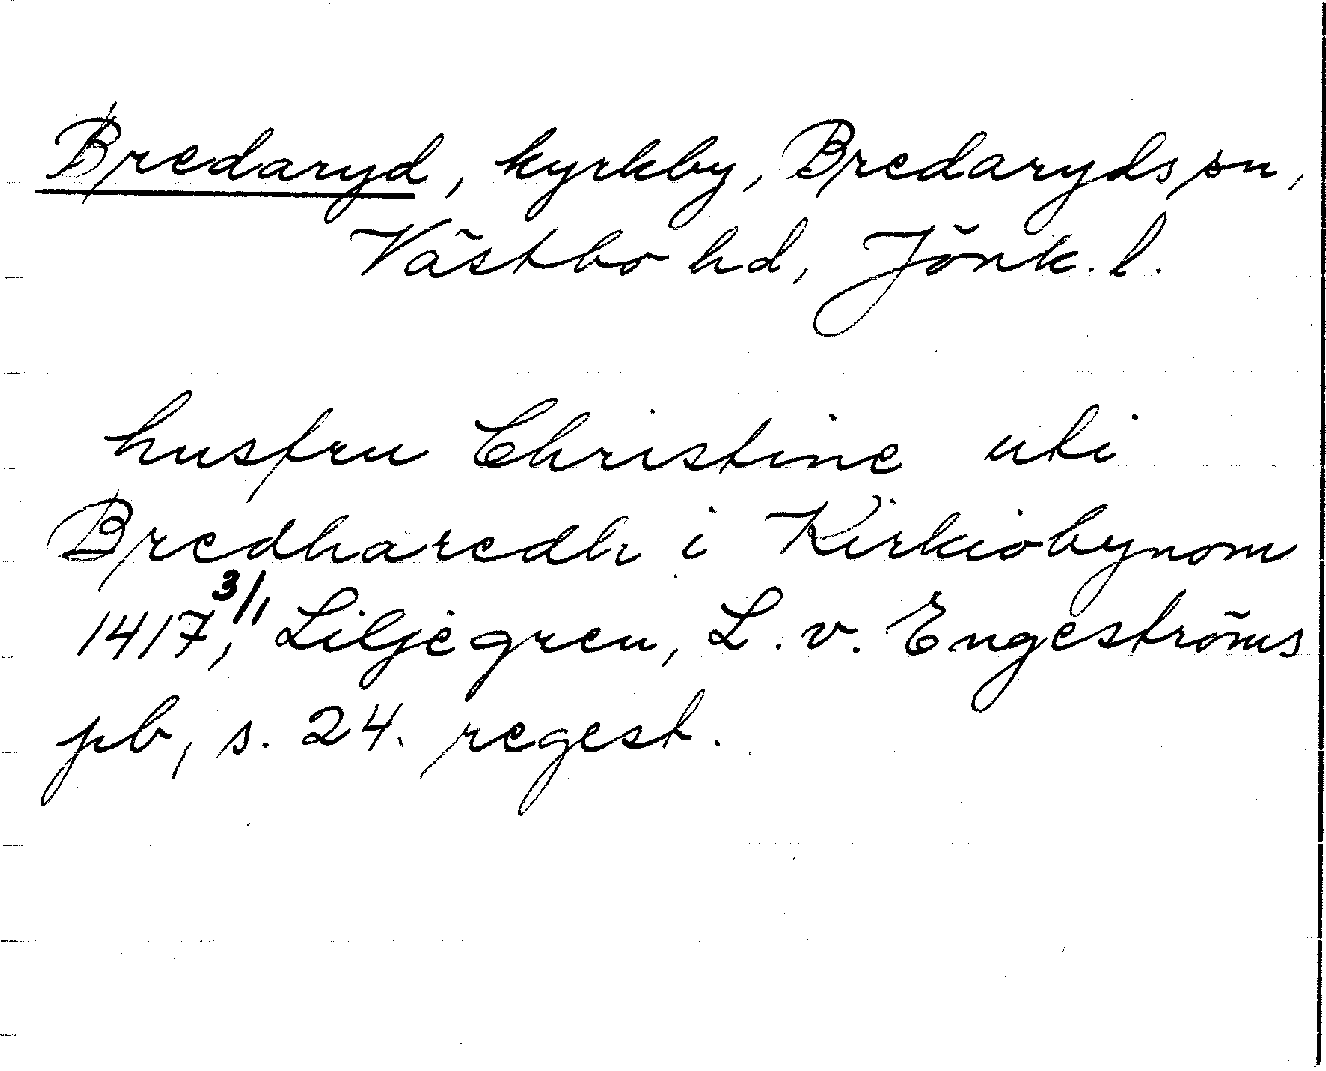 Bredaryd, kyrkby, Bredaryds sn,
Västbo hd, Jönk. l.
husfru Christine uti
Bredharedh i Kirkiobynom
1417 3/1, Liljegren, L. v. Engeströms
pb, s. 24. regest.